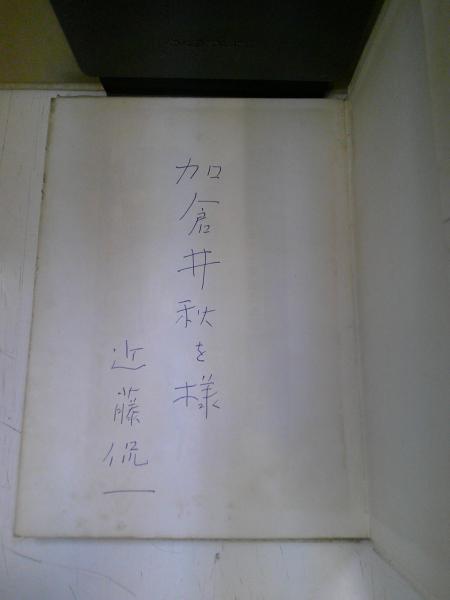 加倉井秋を様
近藤侃一